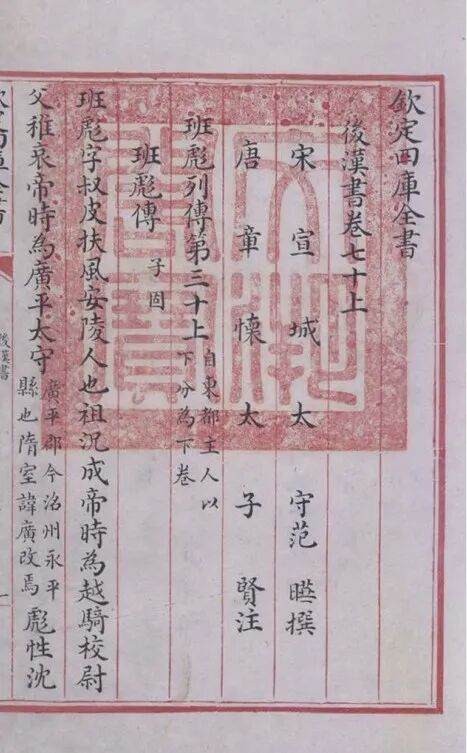 欽定四庫全書
後漢書卷七十上
宋宣城太守范曄撰
唐章懷太子賢注
班彪列傳第三十上 自東都主人以下分為下卷
班彪傳 子固
班彪字叔皮扶風安陵人也祖況成帝時為越騎校尉
父稚哀帝時為廣平太守 廣平郡今洺州永平縣也隋室諱廣改焉 彪性沈
後漢書